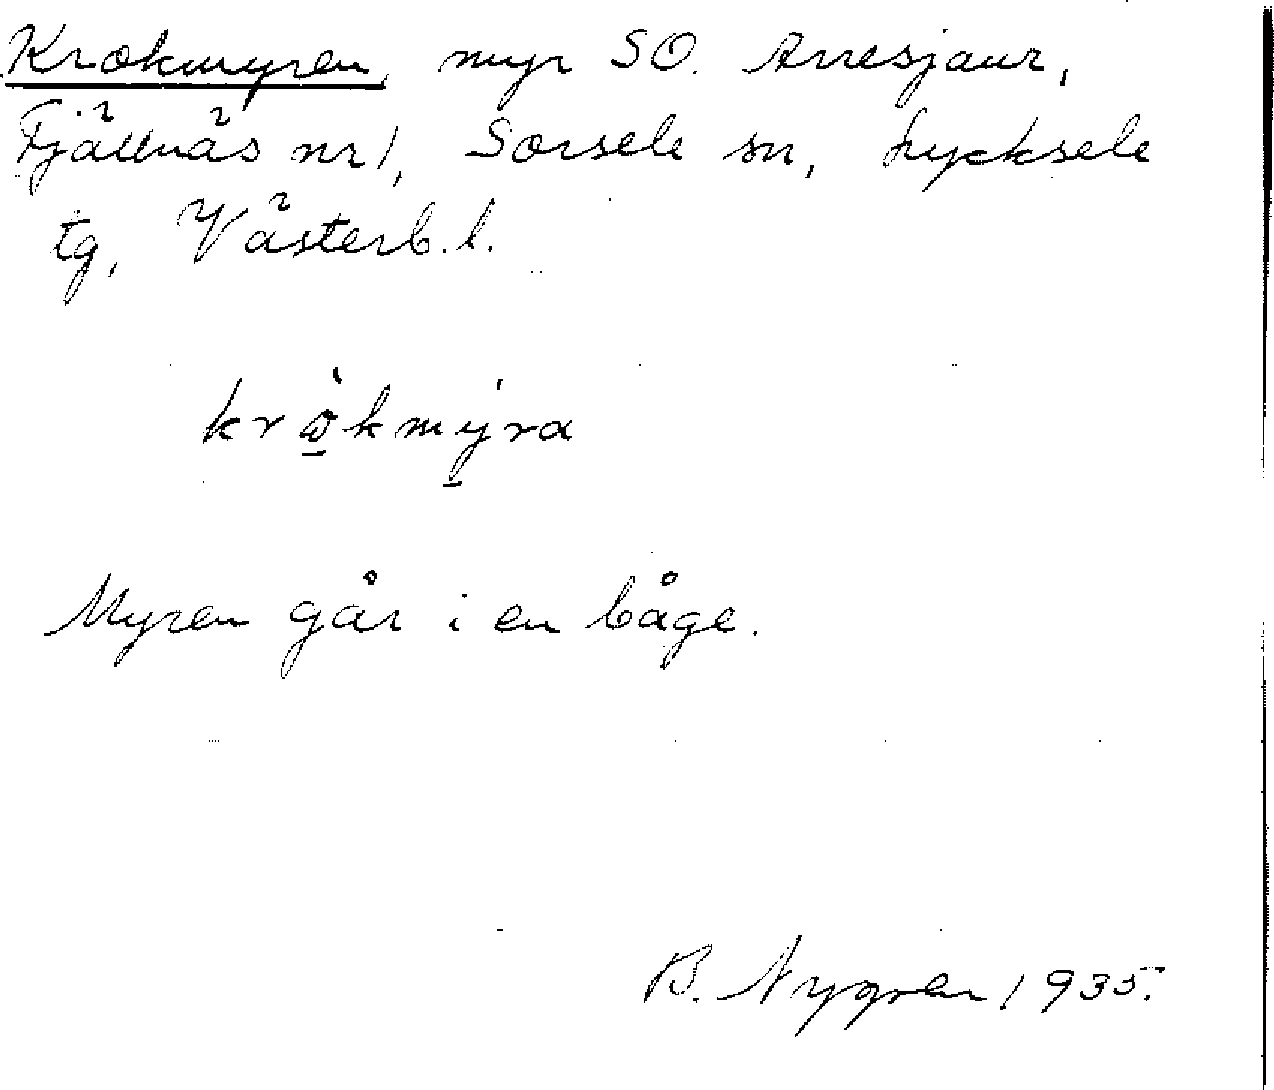 Krokmyren, myr SO. Arresjaur,
Fjällnäs nr 1, Sorsele sn, Lycksele
tg, Västerb. l.
krὼ̲kmý̲ra
Myren går i en båge.
B. Nygren 1935.